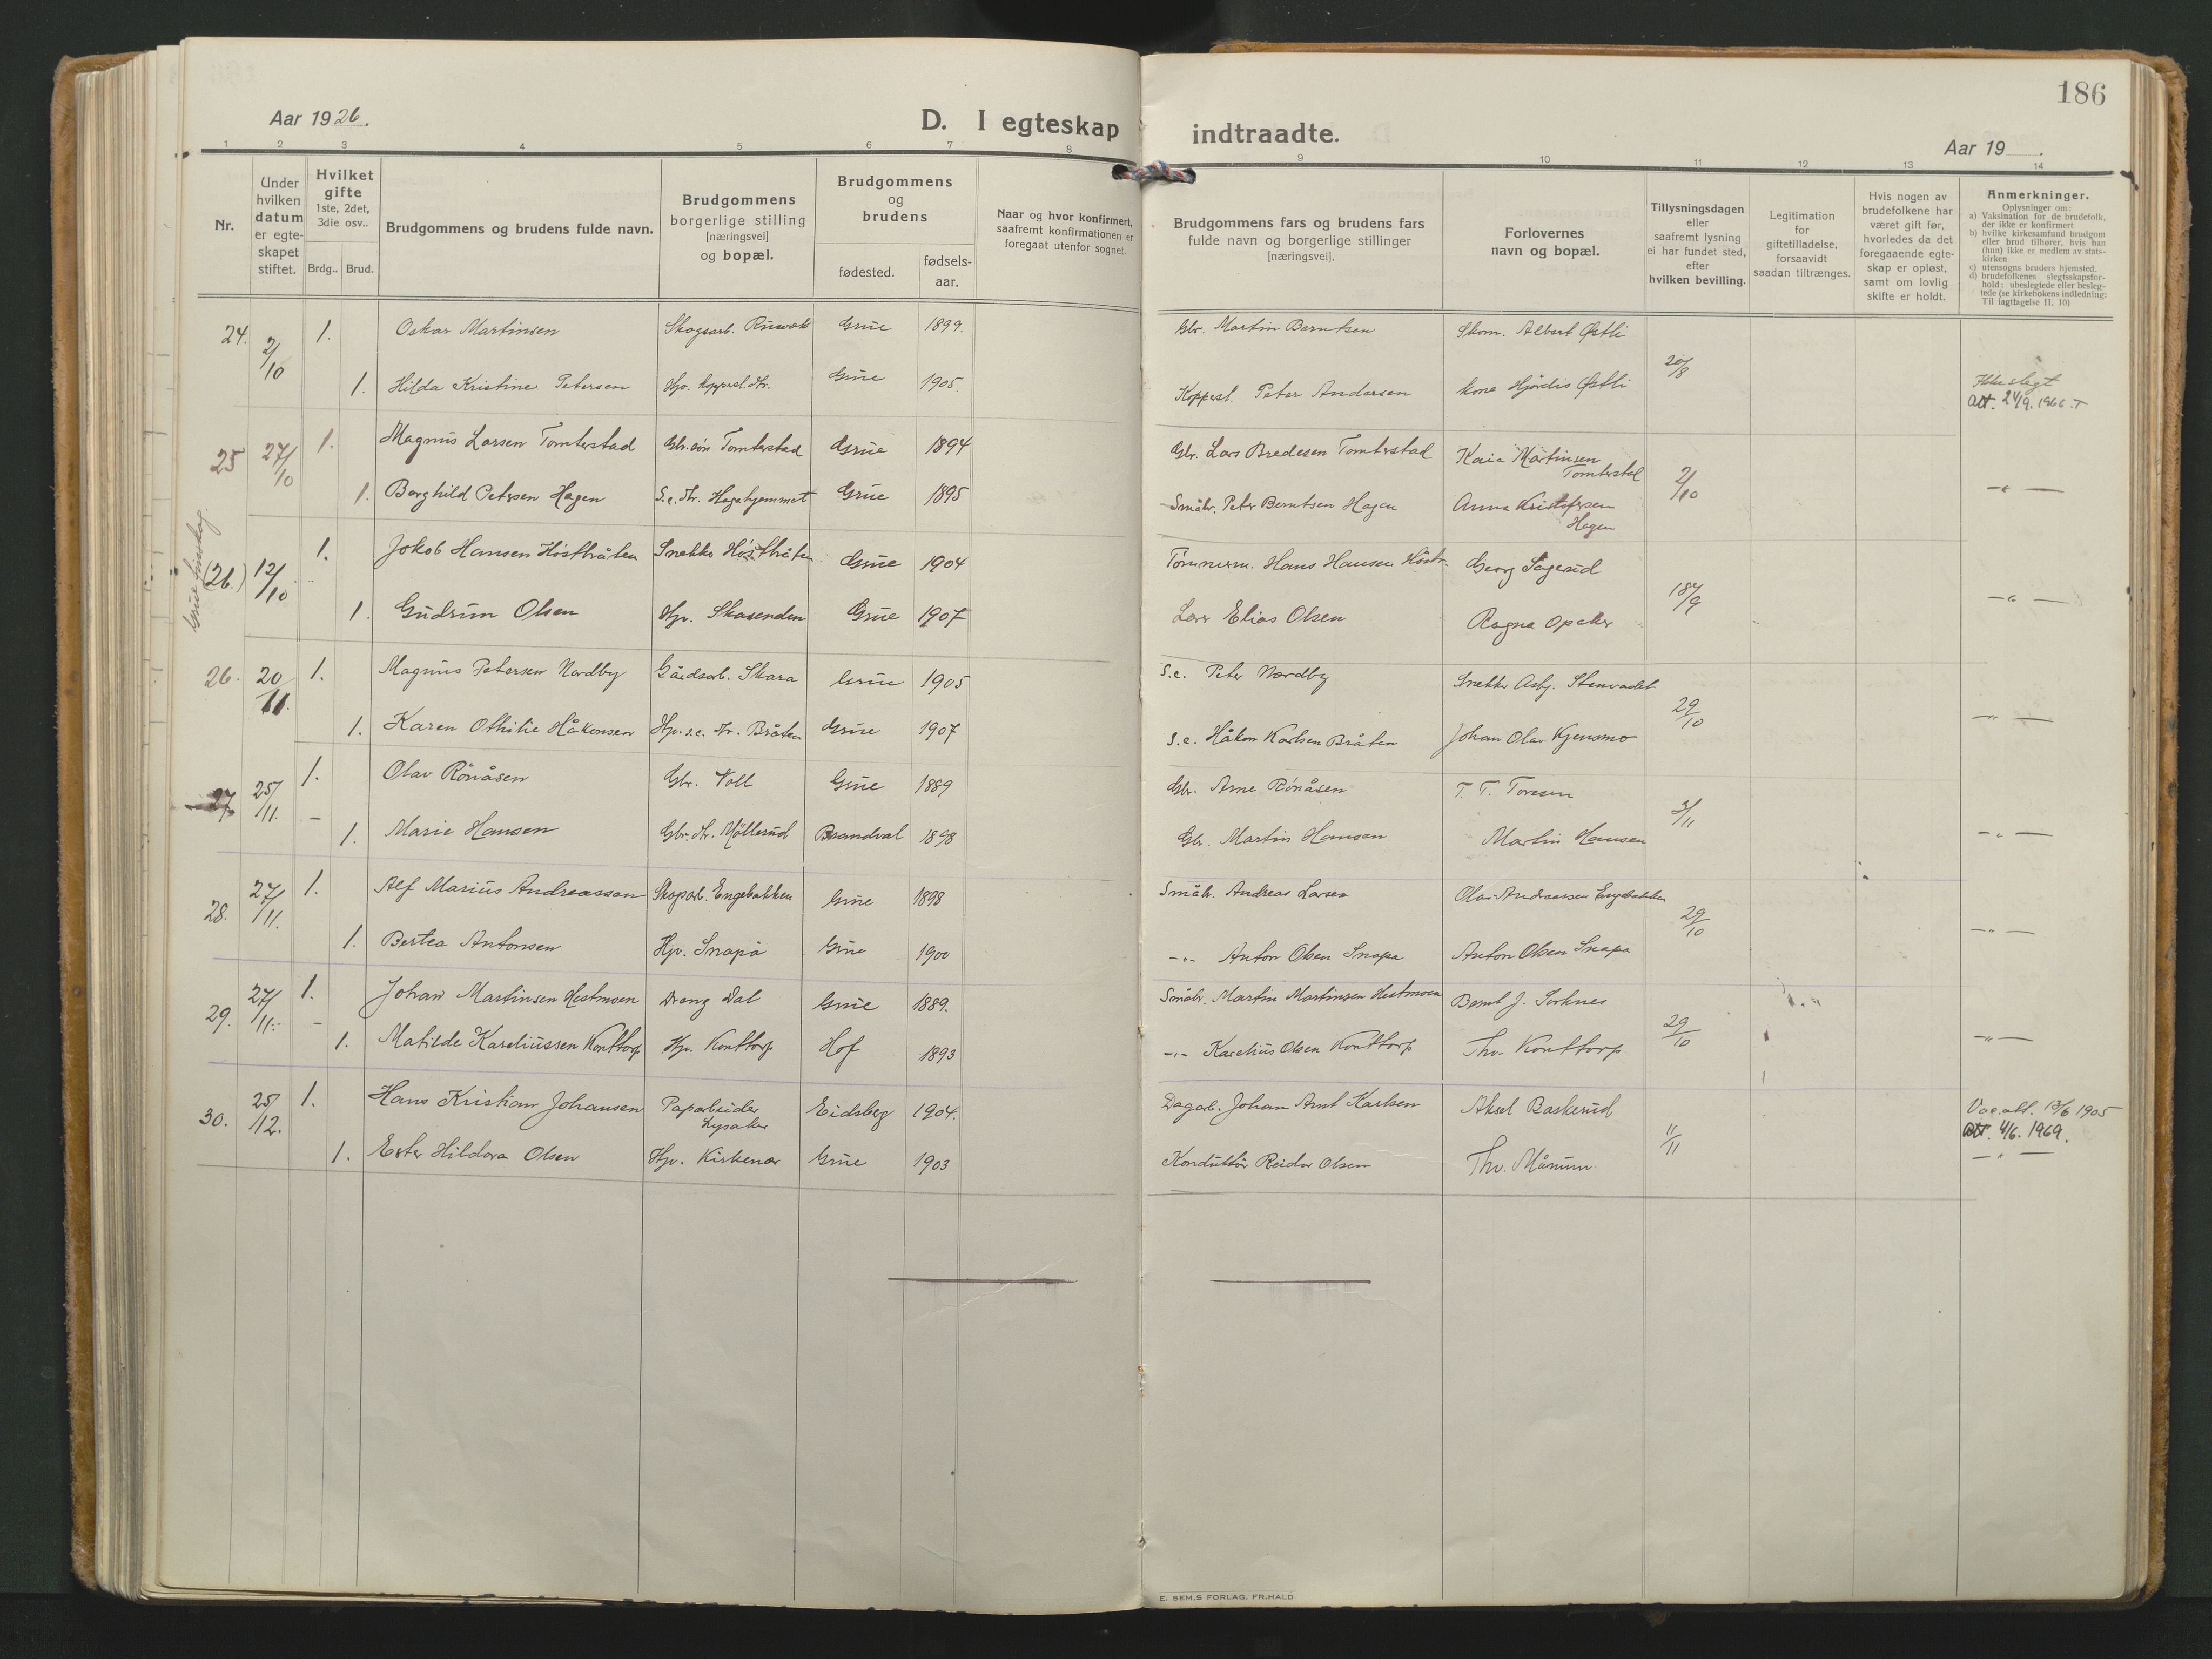 186
Aar 1926.
D. I egteskap indtraadte.
Aar 19 .
1 2 3 4 5 6 7 8 9 10 11 12 13 14
Nr.
Under hvilken datum er egteskapet stiftet.
Hvilket gifte 1ste, 2det, 3die osv..
Brdg.. Brud.
Brudgommens og brudens fulde navn.
Brudgommens borgerlige stilling [næringsvei] og bopæl.
Brudgommens og brudens
fødested.
fødsels-aar.
Naar og hvor konfirmert, saafremt konfirmationen er foregaat utenfor sognet.
Brudgommens fars og brudens fars fulde navn og borgerlige stillinger [næringsvei].
Forlovernes navn og bopæl.
Tillysningsdagen eller saafremt lysning ei har fundet sted, efter hvilken bevilling.
Legitimation for giftetilladelse, forsaavidt saadan tiltrænges.
Hvis nogen av brudefolkene har været gift før, hvorledes da det foregaaende egteskap er opløst, samt om lovlig skifte er holdt.
Anmerkninger.
Oplysninger om:
a) Vaksination for de brudefolk, der ikke er konfirmert
b) hvilke kirkesamfund brudgom eller brud tilhører, hvis han (hun) ikke er medlem av statskirken
c) utensogns bruders hjemsted.
d) brudefolkenes slegtsskapsforhold: ubeslegtede eller beslegtede (se kirkebokens indledning: Til iagttagelse II. 10)
24. 2/10 1. Oskar Martinsen Skogsarb. Grue 1899. Gbr. Martin Berntsen Skom. Albert Østli 20/8
1. Hilda Kristine Petersen Grue 1905. Peter Andersen kone Hjørdis Østli Ikke slegt
Att. 24/9.
25 27/10 1. Magnus Larsen Tomterstad Gbr. søn Tomterstad Grue 1894 Gbr. Lars Bredesen Tomterstad Kaia Martinsen Tomterstad 2/10
1. Borghild Petersen Hagen S.e. dtr. Hagahjemmet Grue 1895 Småbr. Peter Berntsen Hagen Anna Kristofersen Hagen — " —
(26.) 12/10 1. Jakob Hansen Høstbråten Snekker Høstbråten Grue 1904 Tømmerm. Hans Hansen Høstbr. Georg Sagerud 18/9
1. Gudrun Olsen Hp. Skasenden Grue 1907 Elias Olsen Ragna — " —
26. 20/11. 1. Magnus Petersen Nordby Gårdsarb. Skara Grue 1905 S.e. Peter Nordby Snekker 29/10
1. Karen Othilie Håkonsen Hp. s.e. dtr. Bråten Grue 1907 S.e. Håkon Karlsen Bråten Johan Olav Kjensmo — " —
27 25/11. 1. Olav Rönåsen Gbr. Voll Grue 1889 Gbr. Arne Rönåsen T. T. Toresen 3/11
1. Marie Hansen Gbr. dtr. Möllerud Brandval 1898 Gbr. Martin Hansen Martin Hansen — " —
28. 27/11. 1. Alf Marius Andreassen Skogsarb. Engebakken Grue 1898 Småbr. Andreas Larsen Olav Andreassen Engebakken 29/10
1. Bertea Antonsen Hp. Snapa Grue 1900 — " — Anton Olsen Snapa Anton Olsen Snapa — " —
29. 27/11. 1. Johan Martinsen Hestmoen Dreng Dal Grue 1889. Småbr. Martin Martinsen Hestmoen Bernt J. Sorknes 29/10
1. Matilde Kareliussen Konttorp Hp. Konttorp Hof 1893 — " — Karelius Olsen Konttorp Thv. Konttorp — " —
30. 25/12. 1. Hans Kristian Johansen Paparbeider Lysaker Eidsberg 1904. Dagarb. Johan Arnt Karlsen Aksel Baskerud 11/11 Vac.att. 13/6 1905
Att. 4/6. 1969.
1. Ester Hildora Olsen Hp. Kirkenær Grue 1903 Konduktör Reidar Olsen Thv. Månum — " —
E. SEM,S FORLAG, FR.HALD